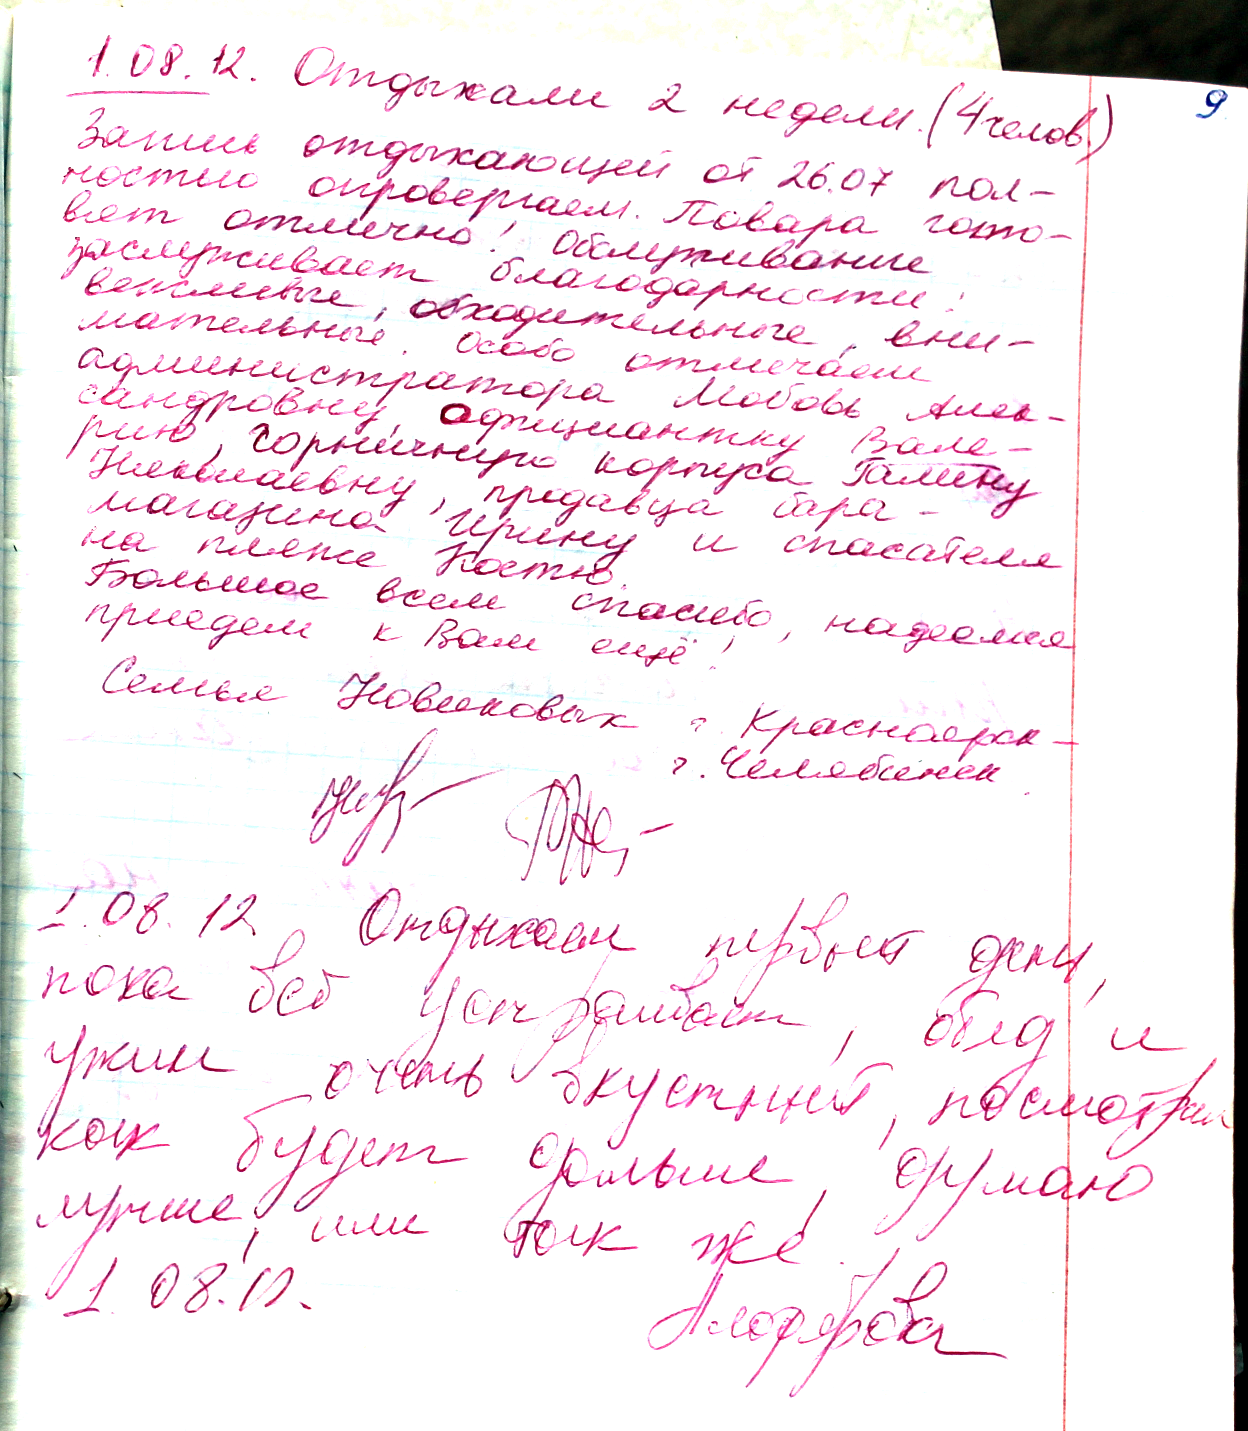 9
1.08.12. Отдыхали 2 недели. (4 челов.)
Запись отдыхающей от 26.07 пол-
ностью опровергаем. Повара гото-
вят отлично! Обслуживание
заслуживает благодарности!
вежливые, обходительные, вни-
мательные. Особо отмечаем
администратора Любовь Алек-
сандровну, официантку Вале-
рию, горничную корпуса Галину
Николаевну, продавца бара-
магазина Ирину и спасателя
на пляже Костю.
Большое всем спасибо, надеемся
приедем к Вам ещё!
Семья Новиковых г. Красноярск-
г. Челябинск.
1.08.12. Отдыхаем первый день,
пока всё устраивает, обед и
ужин очень вкусный, посмотрим
как будет дальше, думаю
лучше, или так же.
1.08.12.